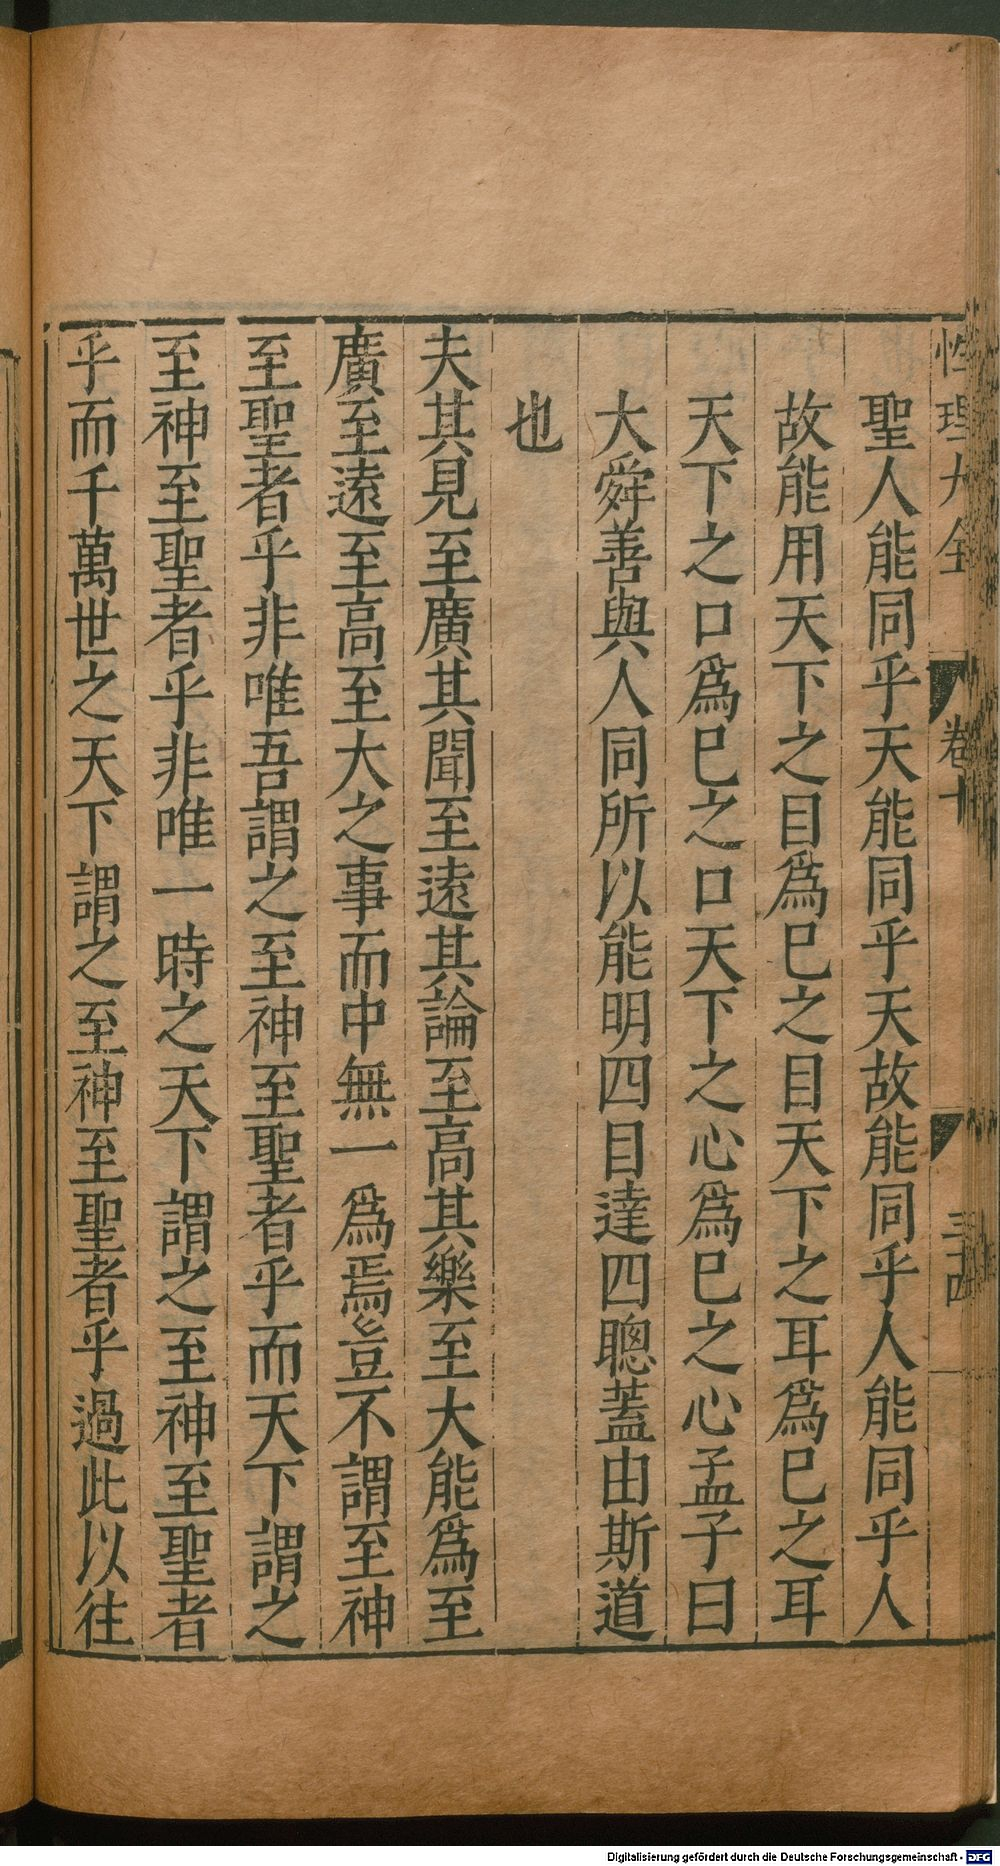 性理大全 卷十 三十四
聖人能同乎天能同乎天故能同乎人能同乎人
故能用天下之目爲巳之目天下之耳爲巳之耳
天下之口爲巳之口天下之心爲巳之心孟子曰
大舜善與人同所以能明四目達四聰蓋由斯道
也
夫其見至廣其聞至遠其論至高其樂至大能爲至
廣至遠至高至大之事而中無一爲焉豈不謂至神
至聖者乎非唯吾謂之至神至聖者乎而天下謂之
至神至聖者乎非唯一時之天下謂之至神至聖者
乎而千萬世之天下謂之至神至聖者乎過此以往
Digitalisierung gefördert durch die Deutsche Forschungsgemeinschaft - DFG